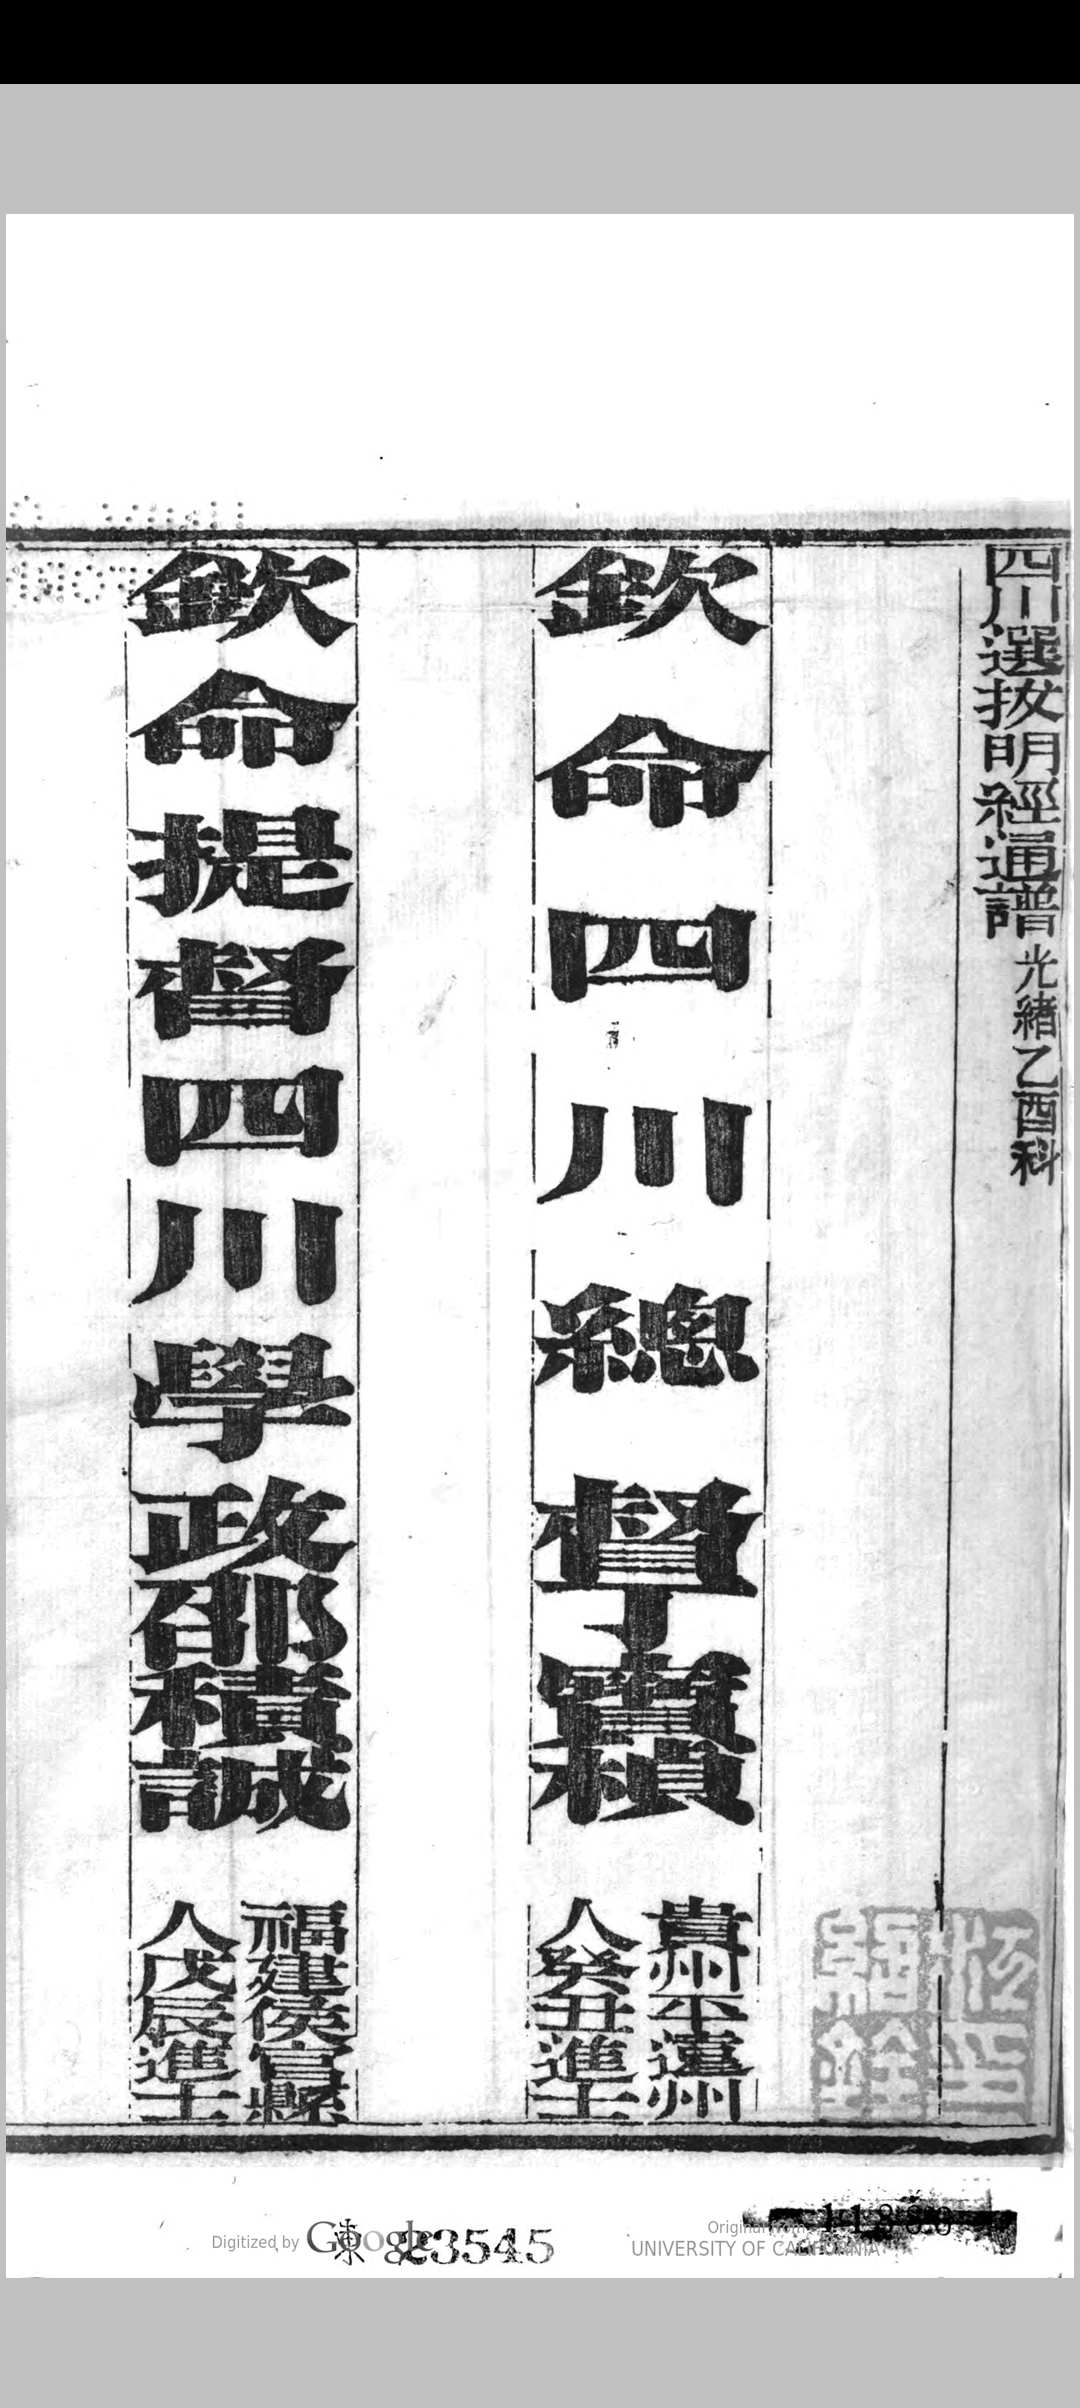 四川選拔明經通譜 光緒乙酉科
欽命四川總督丁寶楨 貴州平遠州
人癸丑進士
欽命提督四川學政邵積誠 福建侯官縣
人戊辰進士
Digitized by Google
23545
Original from
UNIVERSITY OF CALIFORNIA